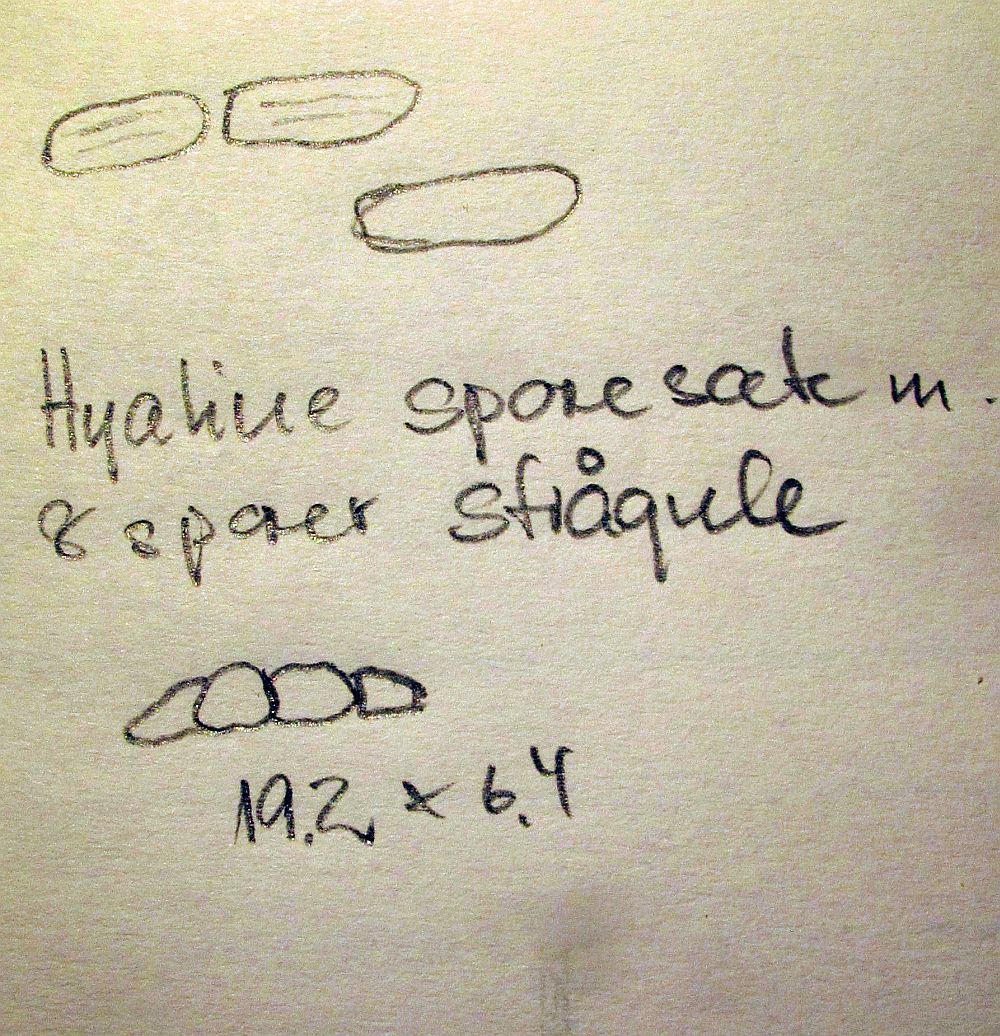 Hyaline sporesæk m.
8 sporer strågule
19.2 x 6.4